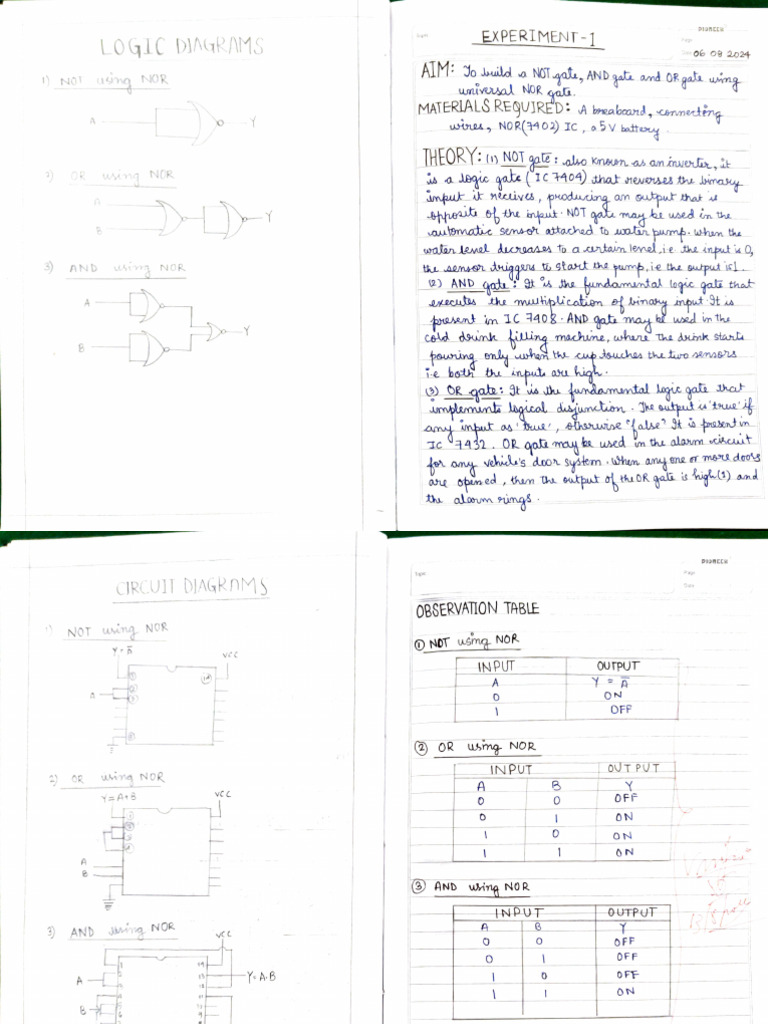 LOGIC DIAGRAMS
1) NOT using NOR
A
Y
2) OR using NOR
A
B
Y
3) AND using NOR
A
B
Y
PIONEER
Page
Date 06 08 2024
EXPERIMENT-1
AIM: To build a NOT gate, AND gate and OR gate using
universal NOR gate.
MATERIALS REQUIRED: A breaboard, connecting
wires, NOR(7402) IC, a 5V battery.
THEORY: (1) NOT gate: also known as an inverter, it
is a logic gate (IC 7404) that reverses the binary
input it receives, producing an output that is
opposite of the input. NOT gate may be used in the
automatic sensor attached to water pump. when the
water level decreases to a certain level, i.e. the input is 0,
the sensor triggers to start the pump, i.e the output is 1.
(2) AND gate: It is the fundamental logic gate that
executes the multiplication of binary input. It is
present in IC 7408. AND gate may be used in the
cold drink filling machine, where the drink starts
pouring only when the cup touches the two sensors
i.e both the inputs are high.
(3) OR gate: It is the fundamental logic gate that
implements logical disjunction. The output is 'true' if
any input as 'true', otherwise "false" It is present in
IC 7432. OR gate may be used in the alarm circuit
for any vehicle's door system. when any one or more doors
are opened, then the output of the OR gate is high(1) and
the alarm rings.
CIRCUIT DIAGRAMS
1) NOT using NOR
Y = A̅
VCC
1
14
2
3
A
7
2) OR using NOR
Y = A+B
VCC
A
B
3) AND using NOR
VCC
A
14
13
Y=A.B
B
PIONEER
Page
Date
OBSERVATION TABLE
① NOT using NOR
INPUT OUTPUT
A Y = A̅
0 ON
1 OFF
② OR using NOR
INPUT OUTPUT
A B Y
0 0 OFF
0 1 ON
1 0 ON
1 1 ON
③ AND using NOR
INPUT OUTPUT
A B Y
0 0 OFF
0 1 OFF
1 0 OFF
1 1 ON